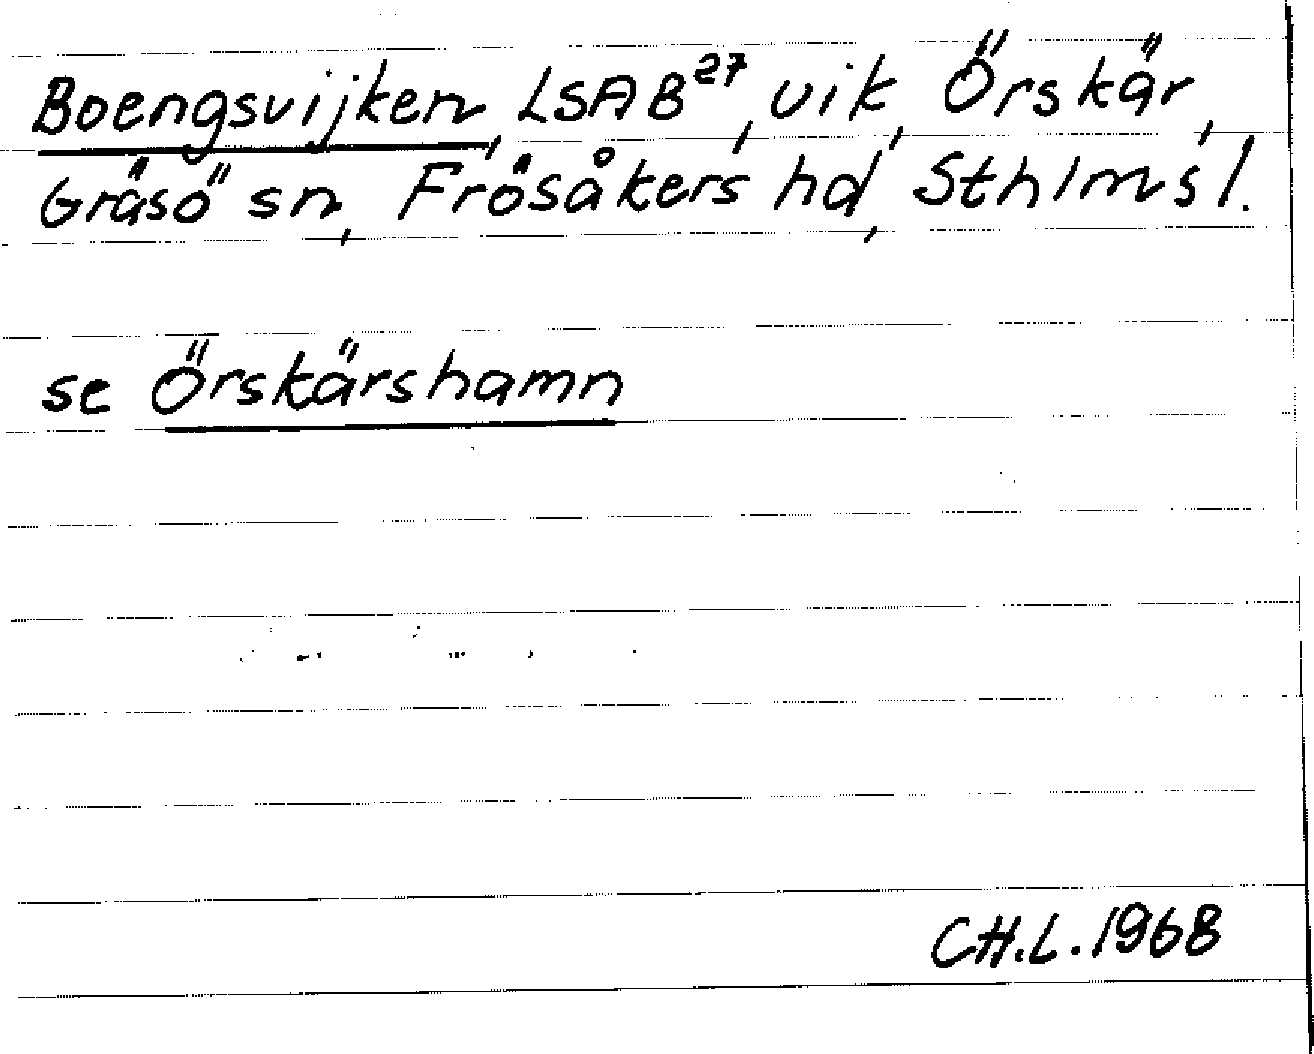 Boengsvijken, LSA B²⁷, vik, Örskär,
Gräsö sn, Frösåkers hd, Sthlms l.
se Örskärshamn
CH.L. 1968